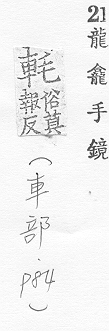 21龍龕手鏡
軞俗莫
報反
(車部.P84)